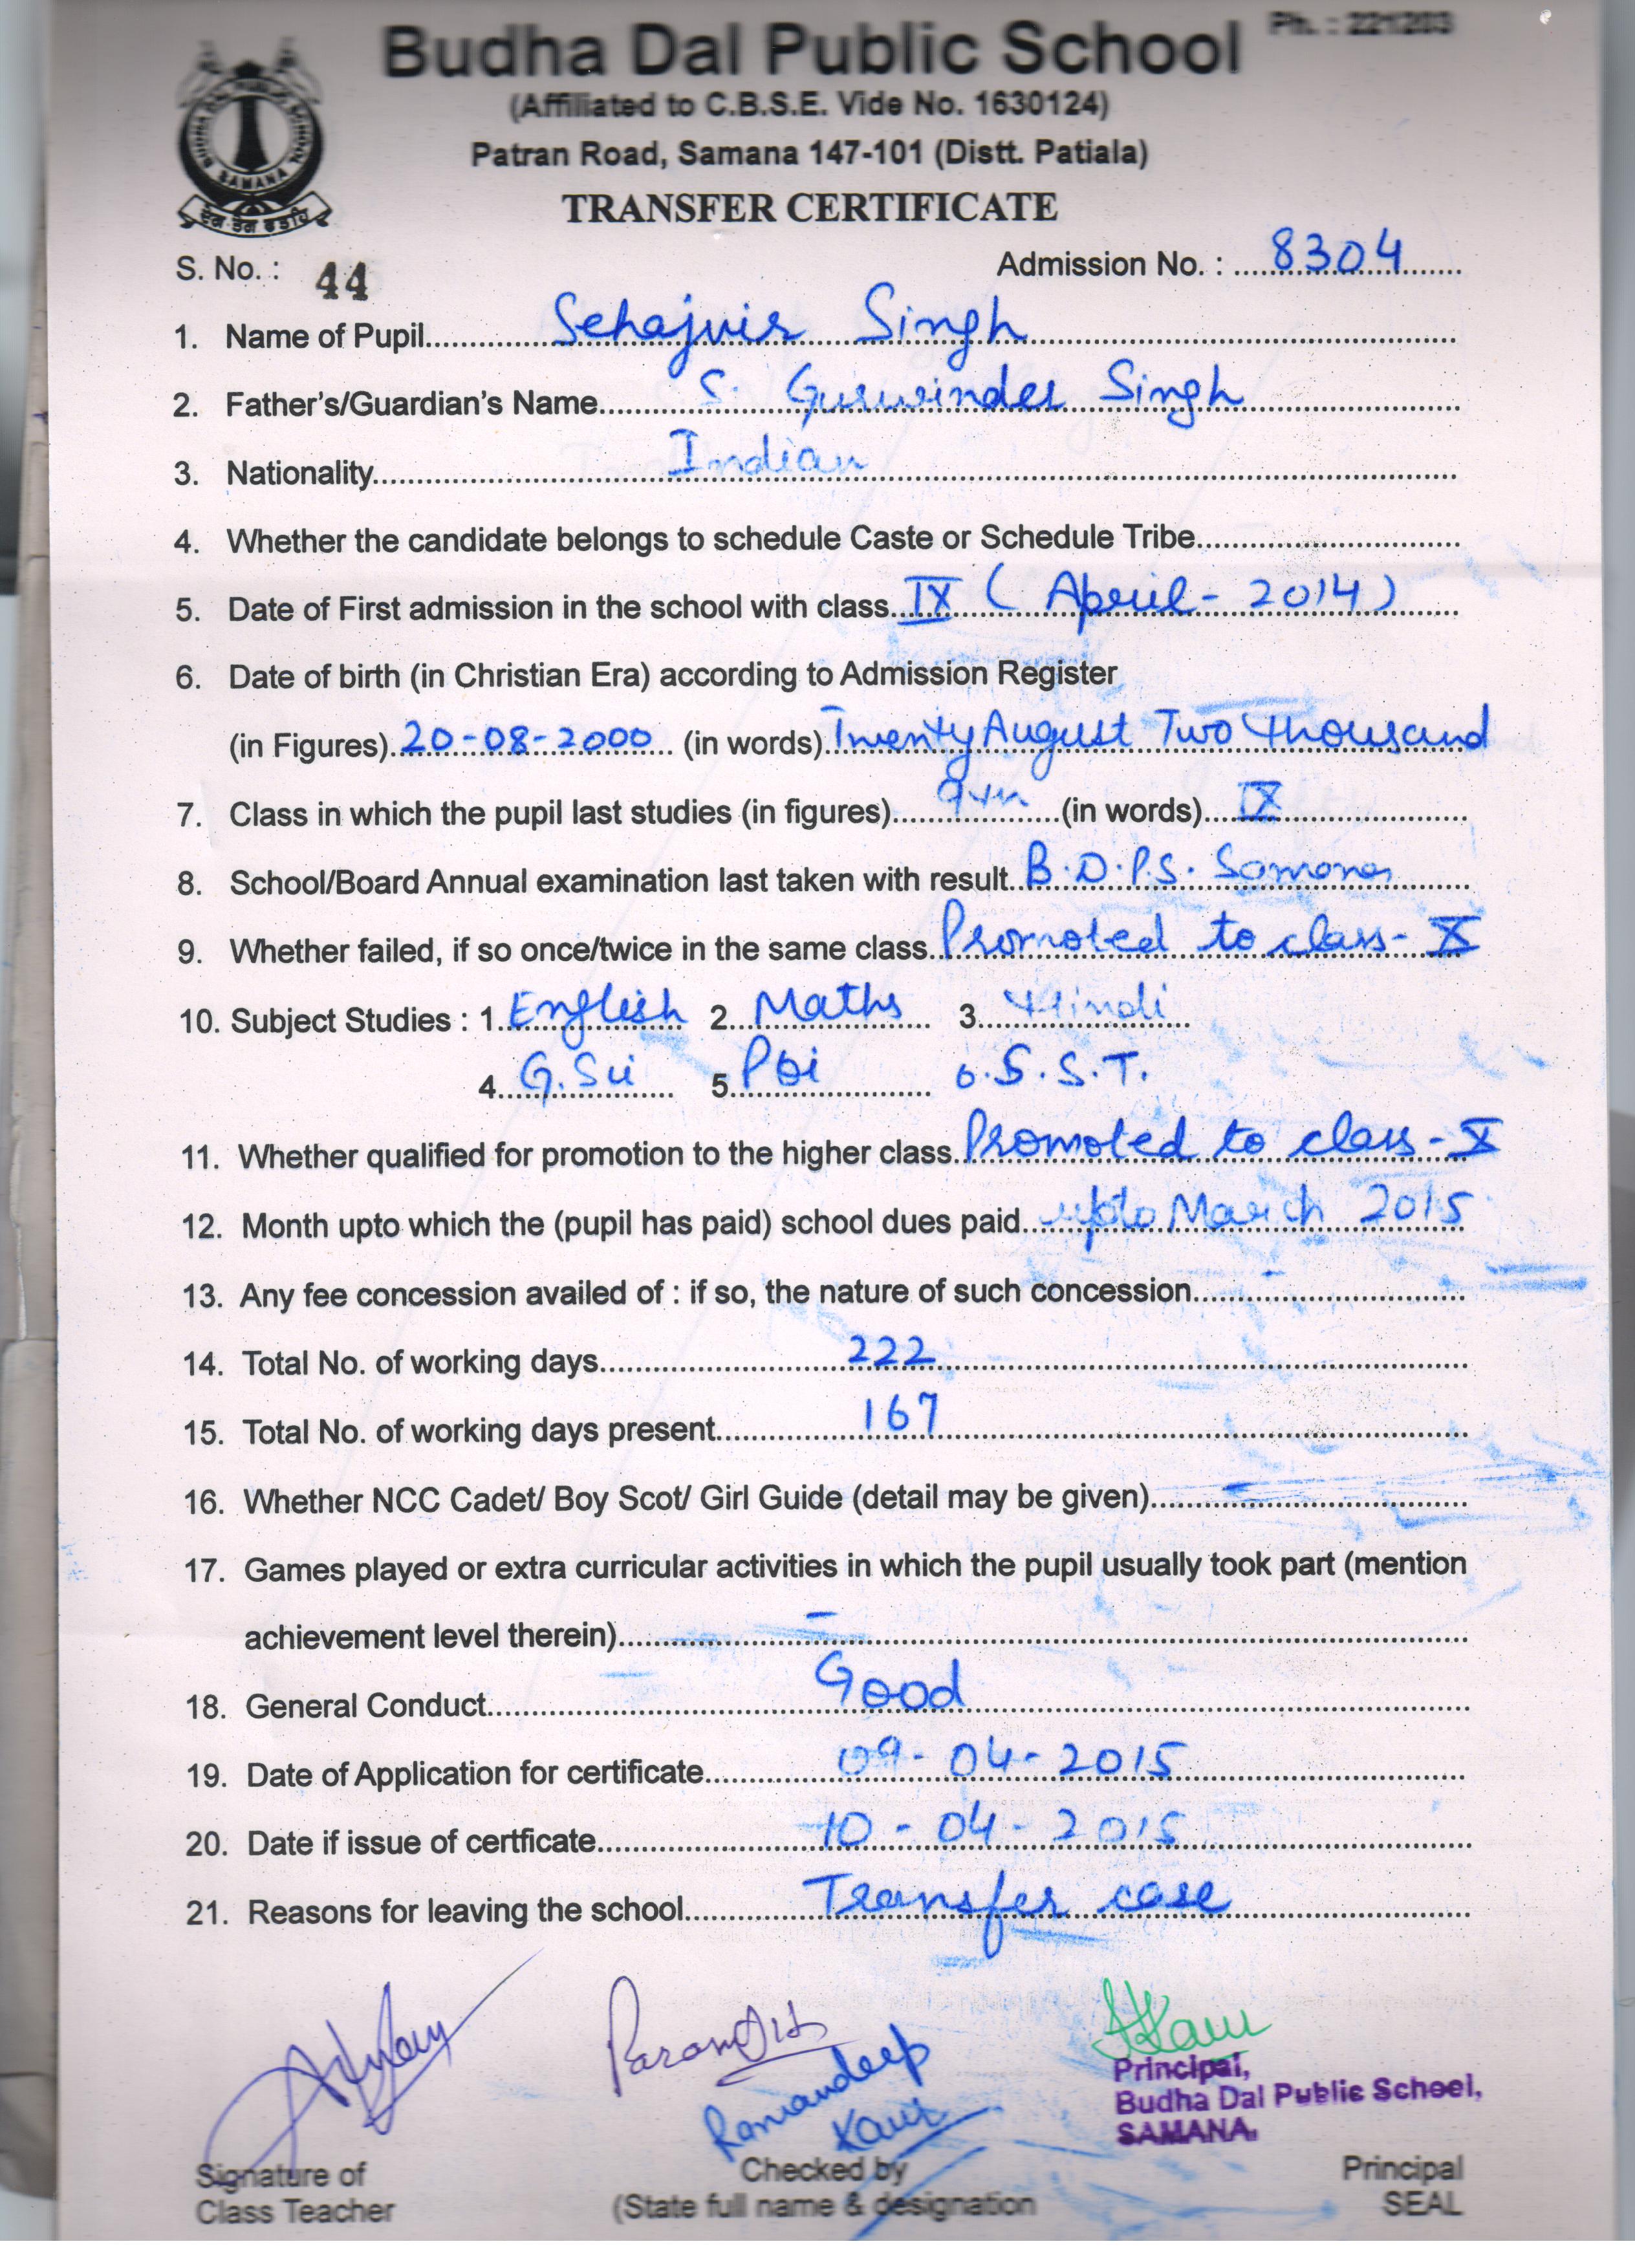 Budha Dal Public School
Ph. : 221203
(Affiliated to C.B.S.E. Vide No. 1630124)
Patran Road, Samana 147-101 (Distt. Patiala)
BUDHA DAL PUBLIC SCHOOL
SAMANA
TRANSFER CERTIFICATE
S. No. : 44 Admission No. : 8304
1. Name of Pupil Sehajvir Singh
2. Father's/Guardian's Name S. Gurwinder Singh
3. Nationality Indian
4. Whether the candidate belongs to schedule Caste or Schedule Tribe
5. Date of First admission in the school with class IX ( April - 2014 )
6. Date of birth (in Christian Era) according to Admission Register
(in Figures) 20-08-2000 (in words) Twenty August Two thousand
7. Class in which the pupil last studies (in figures) 9th (in words) IX
8. School/Board Annual examination last taken with result B.D.P.S. Samana
9. Whether failed, if so once/twice in the same class Promoted to class - X
10. Subject Studies : 1. English 2. Maths 3. Hindi
4. G.Sci 5. Pbi 6. S.S.T.
11. Whether qualified for promotion to the higher class Promoted to class - X
12. Month upto which the (pupil has paid) school dues paid upto March 2015
13. Any fee concession availed of : if so, the nature of such concession
14. Total No. of working days 222
15. Total No. of working days present 167
16. Whether NCC Cadet/ Boy Scot/ Girl Guide (detail may be given) -
17. Games played or extra curricular activities in which the pupil usually took part (mention
achievement level therein) -
18. General Conduct Good
19. Date of Application for certificate 09-04-2015
20. Date if issue of certficate 10-04-2015
21. Reasons for leaving the school Transfer case
Ramandeep
Kaur
Principal,
Budha Dal Public School,
SAMANA.
Signature of
Class Teacher
Checked by
(State full name & designation
Principal
SEAL